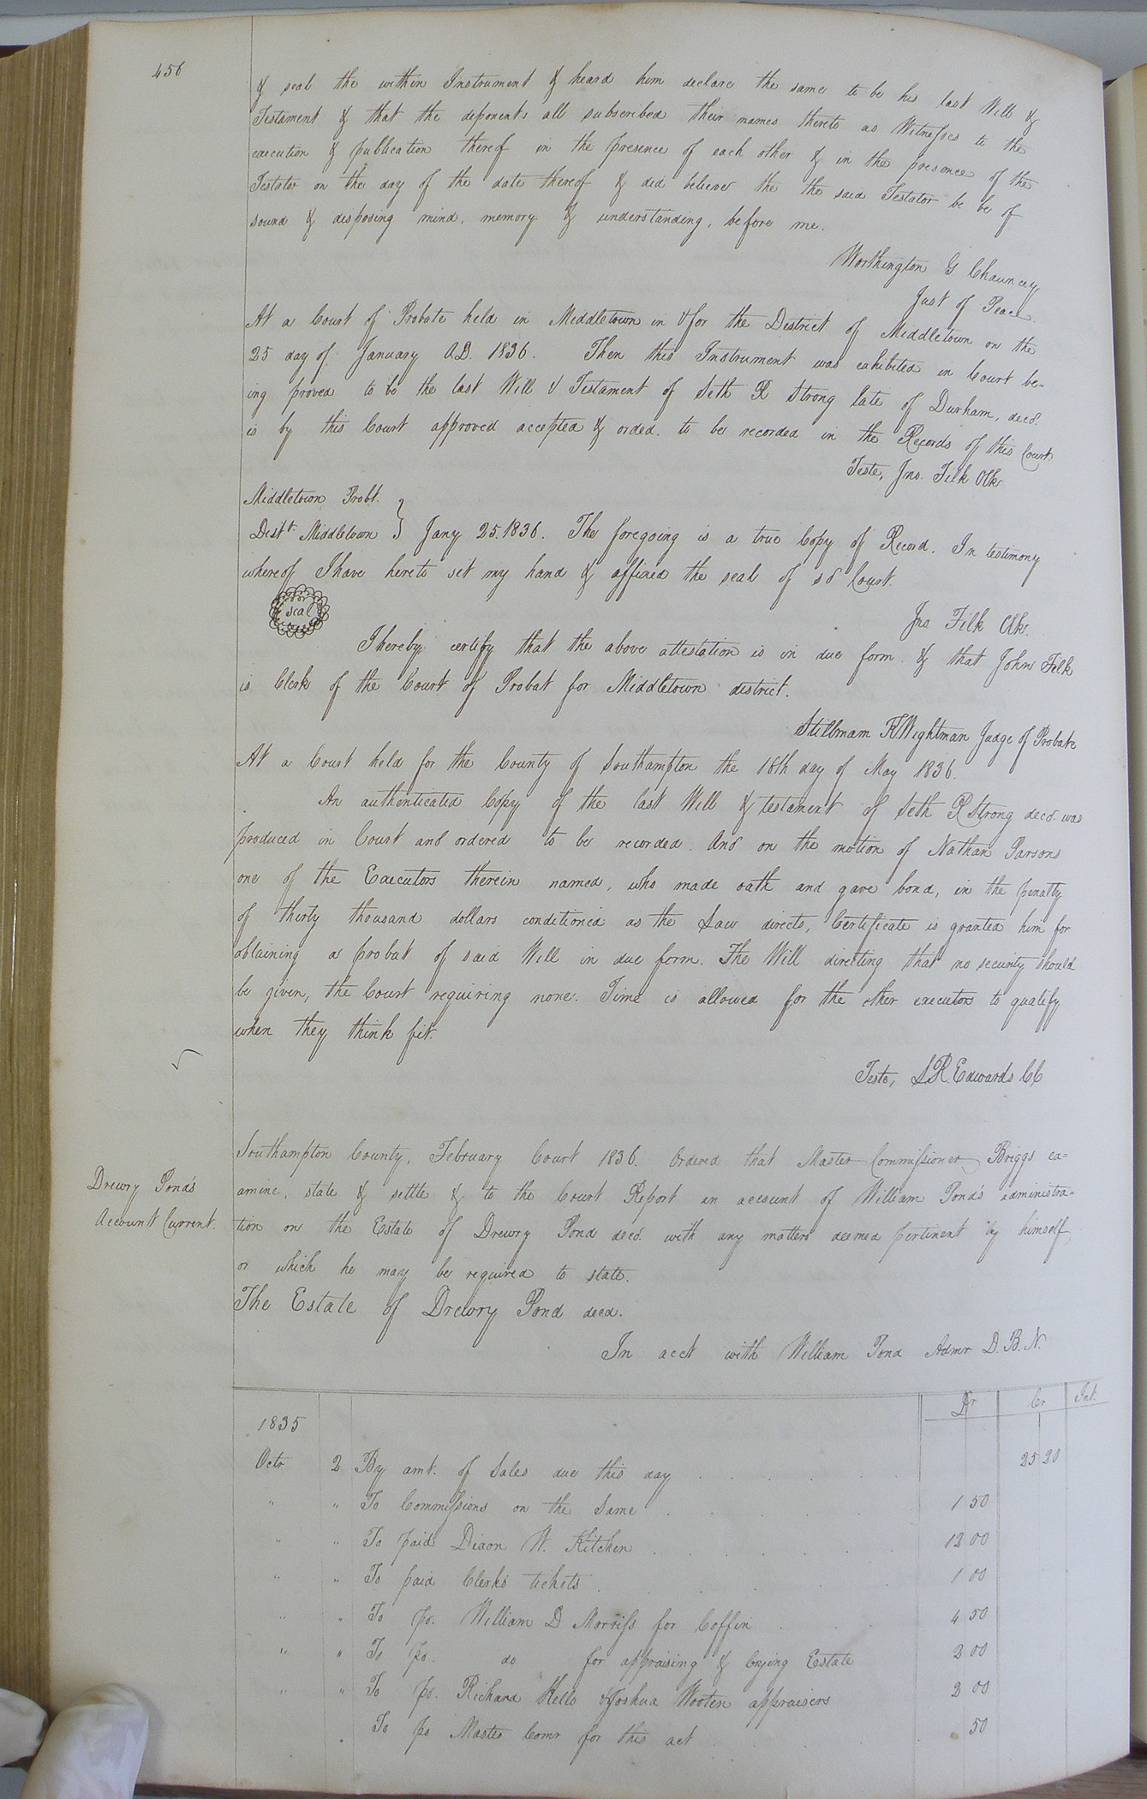 456
& seal the within Instrument & heard him declare the same to be his last Will &
Testament & that the deponents all subscribed their names thereto as Witnesses to the
execution & publication thereof in the presence of each other & in the presence of the
Testator on the day of the date thereof & did believe the the said Testator be be of
sound & disposing mind, memory & understanding, before me.
Worthington G Chauncey
Just of Peace
At a Court of Probate held in Middletown in & for the District of Middletown on the
25 day of January A.D. 1836. Then this Instrument was exhibited in Court be-
ing proved to be the last Will & Testament of Seth R Strong late of Durham, decd.
is by this Court approved accepted & orded. to be recorded in the Records of this Court
Teste, Jno. Filk Clk
Middletown Probt.
Distt. Middletown } Jany 25. 1836. The foregoing is a true Copy of Record. In testimony
whereof I have hereto set my hand & affixed the seal of sd Court.
seal
Jno Filk Clk.
I hereby certify that the above attestation is in due form & that John Filk
is Clerk of the Court of Probat for Middletown district.
Stillmam K Wightman Judge of Probate
At a Court held for the County of Southampton the 16th day of May 1836.
An authenticated Copy of the last Will & testament of Seth R Strong decd. was
produced in Court and ordered to be recorded. And on the motion of Nathan Parsons
one of the Executors therein named, who made oath and gave bond, in the penalty
of thirty thousand dollars conditioned as the Law directs, Certificate is granted him for
obtaining a probat of said Will in due form. The Will directing that no security should
be given, the Court requiring none. Time is allowed for the other executors to qualify
when they think fit.
Teste, L R. Edwards CC
Drewry Pond's
Account Current.
Southampton County, February Court 1836. Ordered that Master Commissioner Briggs ex-
amine, state & settle & to the Court Report an account of William Pond's administra-
tion on the Estate of Drewry Pond decd. with any matters deemed pertinent by himself,
or which he may be required to state.
The Estate of Drewry Pond decd.
In acct with William Pond Admr D. B. N.
Dr Cr Int.
1835
Octr 2 By amt. of Sales due this day 25 20
" " To Commissions on the Same 1 50
" " To paid Dixon W. Kitchen 12 00
" " To paid Clerks tickets 1 00
" " To pd. William D Morriss for Coffin 4 50
" " To pd. do for appraising & crying Estate 2 00
" " To pd. Richard Kello & Joshua Wooten appraisers 2 00
" To pd Master Comr for this act 50